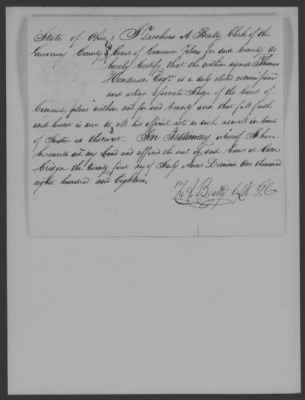 State of Ohio } I Zacheus A. Beatty Clerk of the
Guernsey County } Court of Common Pleas for said County do
hereby Certify that the within signed Thomas
Henderson Esqr is a duly elected commissioned
and acting Associate Judge of the Court of
Common pleas within and for said County and that full faith
and Credit is due to all his official acts as such as well in Court
of Justice as thereout. In Testimony whereof I have
hereunto set my hand and affixed the seal of said Court at Cam
bridge the twenty first day of July Anno Domini One thousand
eight hundred and Eighteen
Z. A. Beatty Clk G.C.